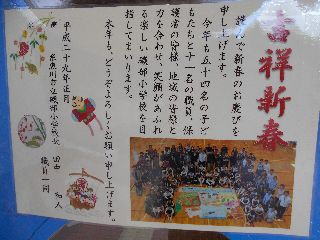 吉祥新春
謹んで新春のお慶びを
申し上げます。
今年も五十四名の子ど
もたちと十一名の職員、保
護者の皆様、地域の皆様と
力を合わせ、笑顔があふれ
る楽しい磯部小学校を目
指してまいります。
来年も、どうぞよろしくお願い申し上げます。
平成二十九年正月
糸魚川市立磯部小学校長 田中
職員一同